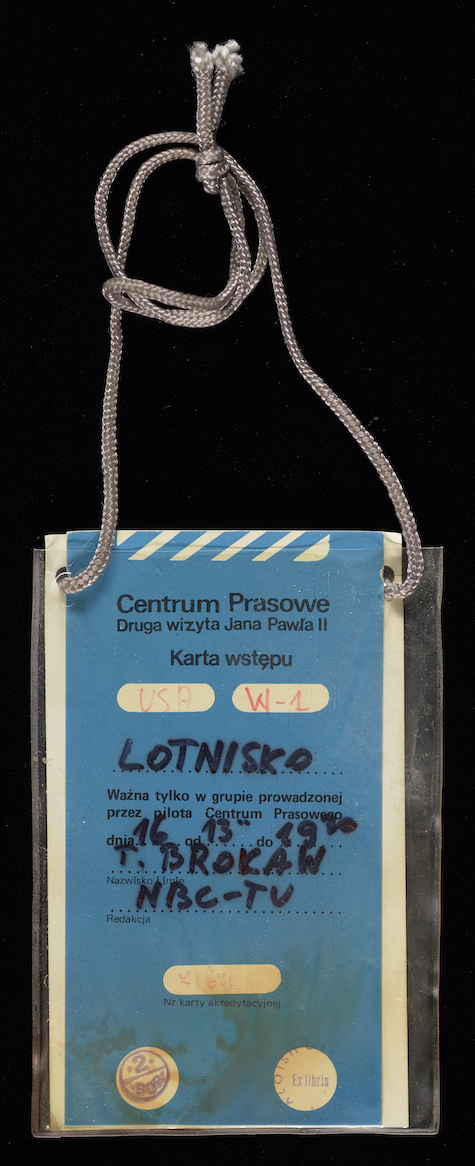 Centrum Prasowe
Druga wizyta Jana Pawła II
Karta wstępu
USA W-1
LOTNISKO
Ważna tylko w grupie prowadzonej
przez pilota Centrum Prasowego
dnia 16 od 13 do 19
T. BROKAW
Nazwisko i imię
NBC-TV
Redakcja
Nr karty akredytacyjnej
2
Ex libris